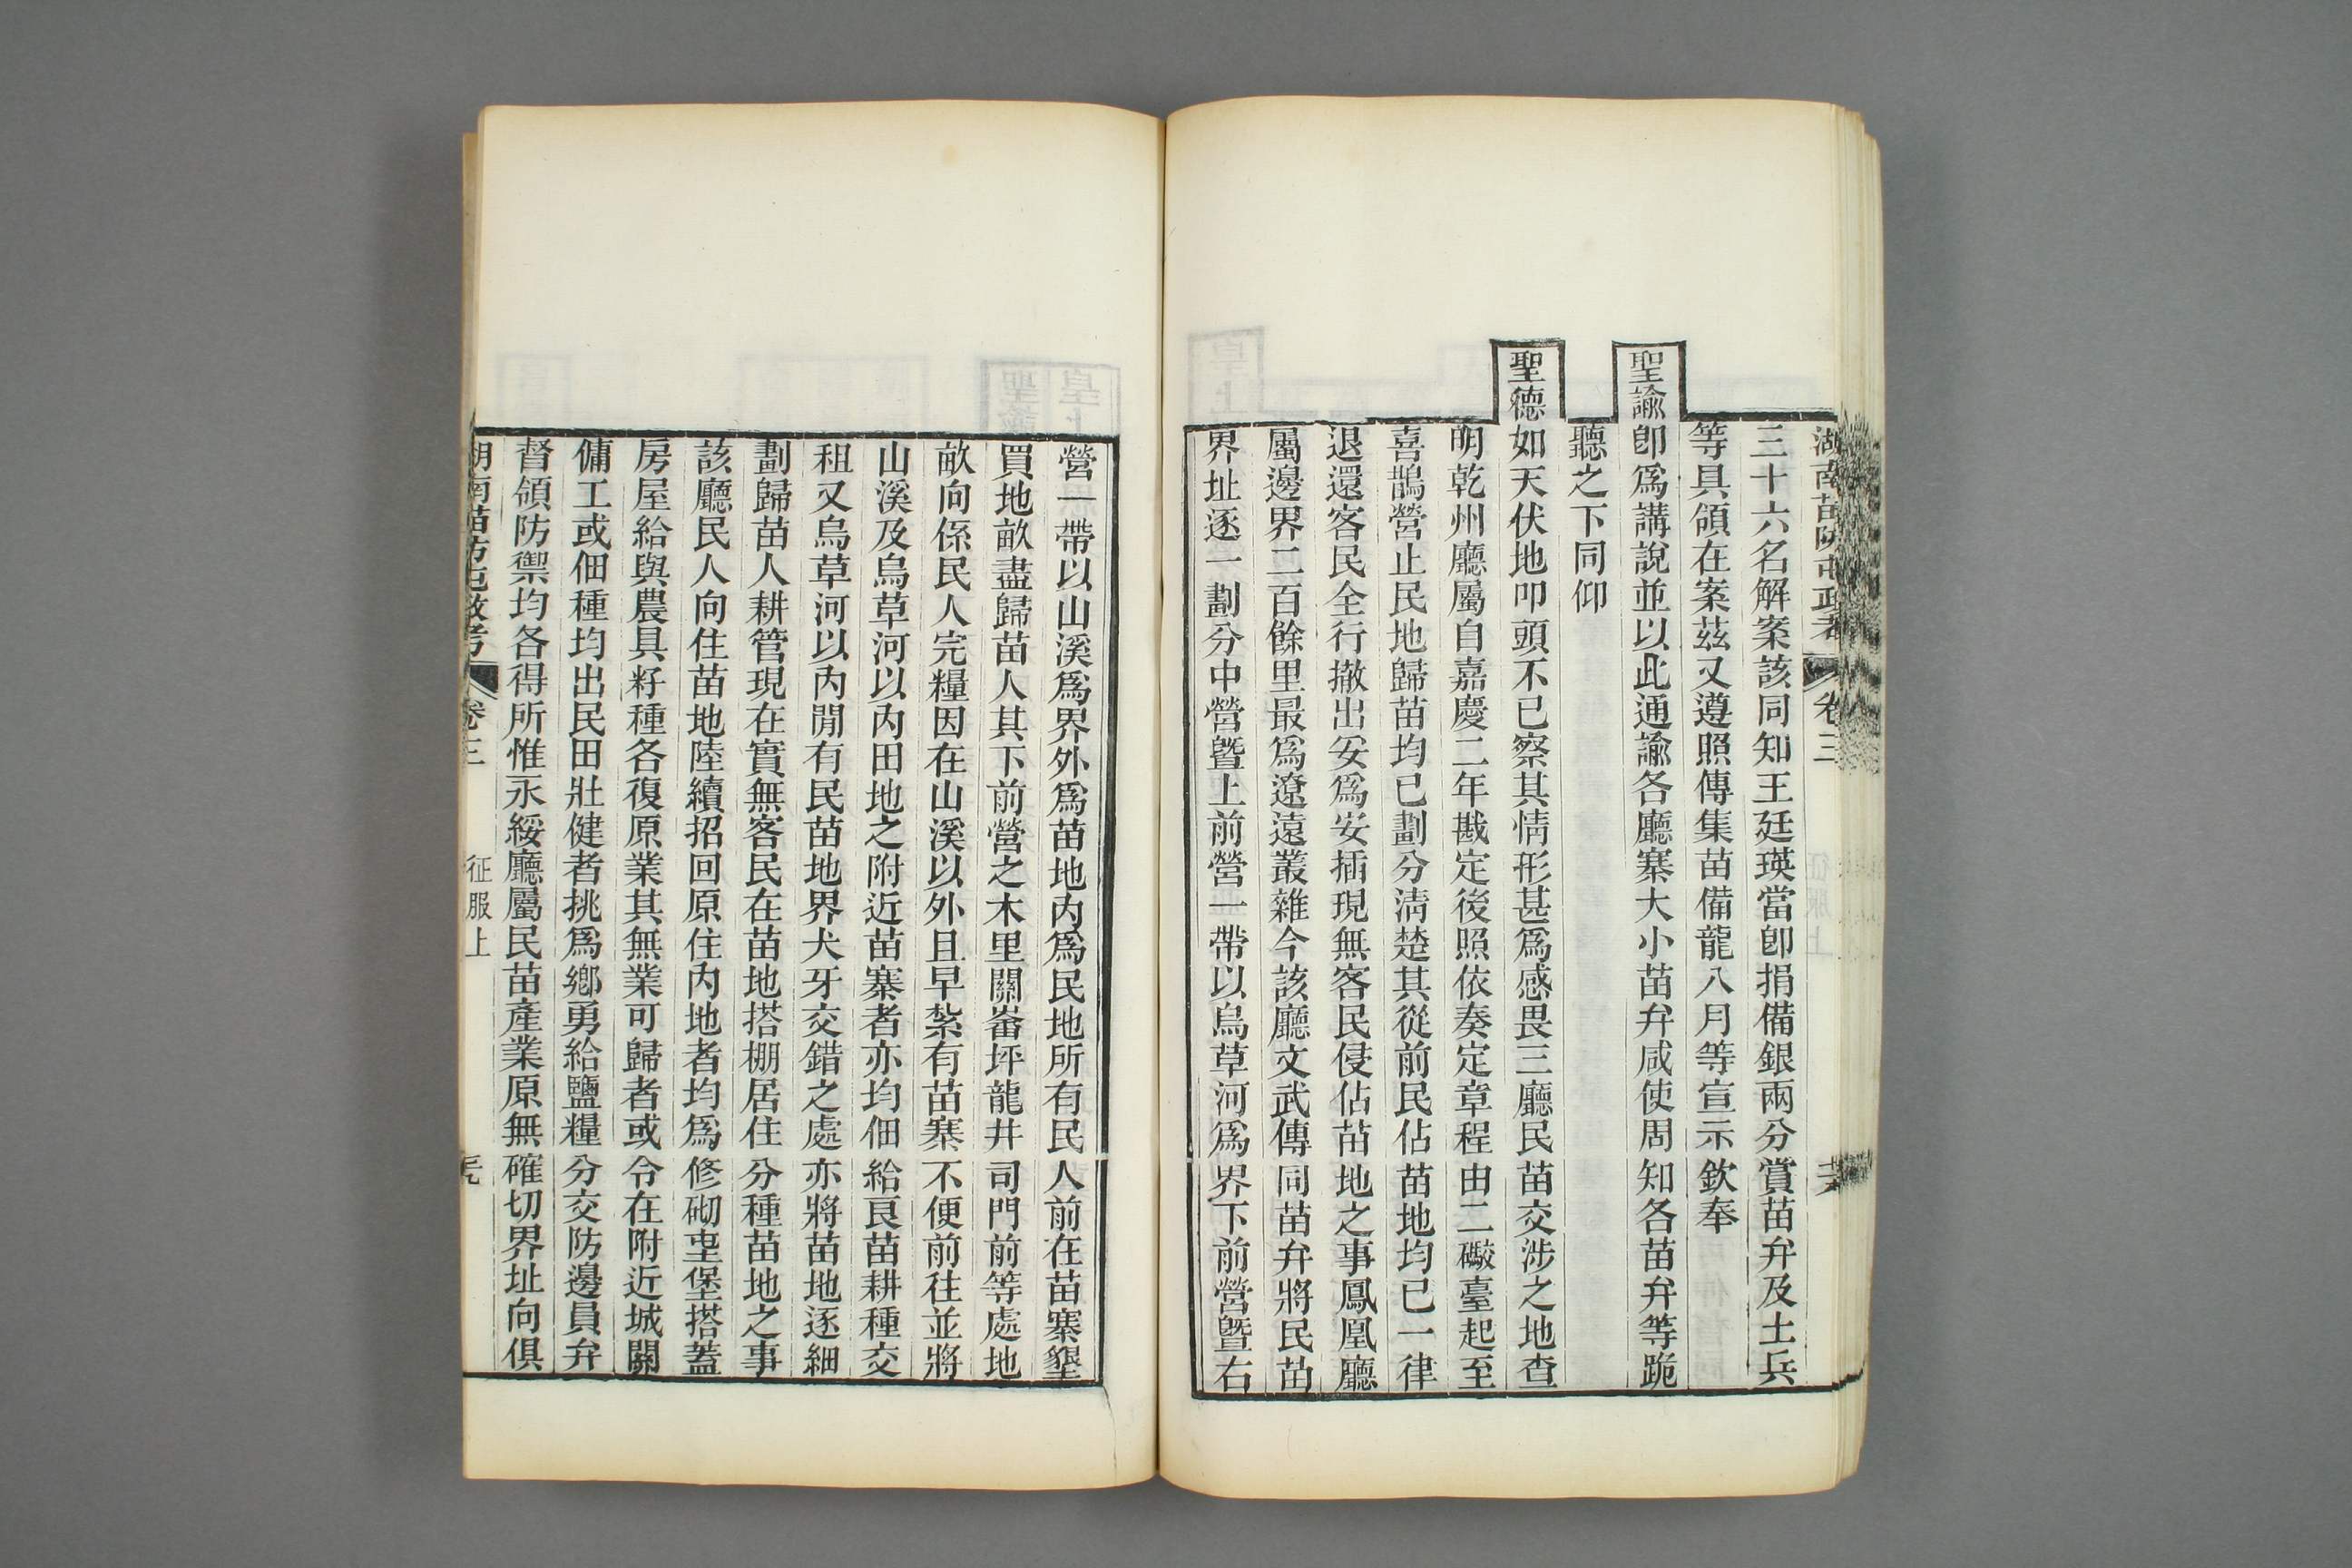 湖南苗防屯政考 卷三
三十六名解案該同知王廷瑛當卽捐備銀兩分賞苗弁及土兵
等具領在案茲又遵照傳集苗備龍八月等宣示欽奉
聖諭卽爲講說並以此通諭各廳寨大小苗弁咸使周知各苗弁等跪
聽之下同仰
聖德如天伏地叩頭不已察其情形甚爲感畏三廳民苗交涉之地查
明乾州廳屬自嘉慶二年戡定後照依奏定章程由二礮臺起至
喜鵲營止民地歸苗均已劃分淸楚其從前民佔苗地均已一律
退還客民全行撤出妥爲安插現無客民侵佔苗地之事鳳凰廳
屬邊界二百餘里最爲遼遠叢雜今該廳文武傳同苗弁將民苗
界址逐一劃分中營曁上前營一帶以烏草河爲界下前營曁右
營一帶以山溪爲界外爲苗地內爲民地所有民人前在苗寨墾
買地畝盡歸苗人其下前營之木里關崙坪龍井司門前等處地
畝向係民人完糧因在山溪以外且早紮有苗寨不便前往並將
山溪及烏草河以內田地之附近苗寨者亦均佃給良苗耕種交
租又烏草河以內閒有民苗地界犬牙交錯之處亦將苗地逐細
劃歸苗人耕管現在實無客民在苗地搭棚居住分種苗地之事
該廳民人向住苗地陸續招回原住內地者均爲修砌屯堡搭蓋
房屋給與農具籽種各復原業其無業可歸者或令在附近城關
傭工或佃種均出民田壯健者挑爲鄉勇給鹽糧分交防邊員弁
督領防禦均各得所惟永綏廳屬民苗產業原無確切界址向俱
湖南苗防屯政考 卷三 征服上